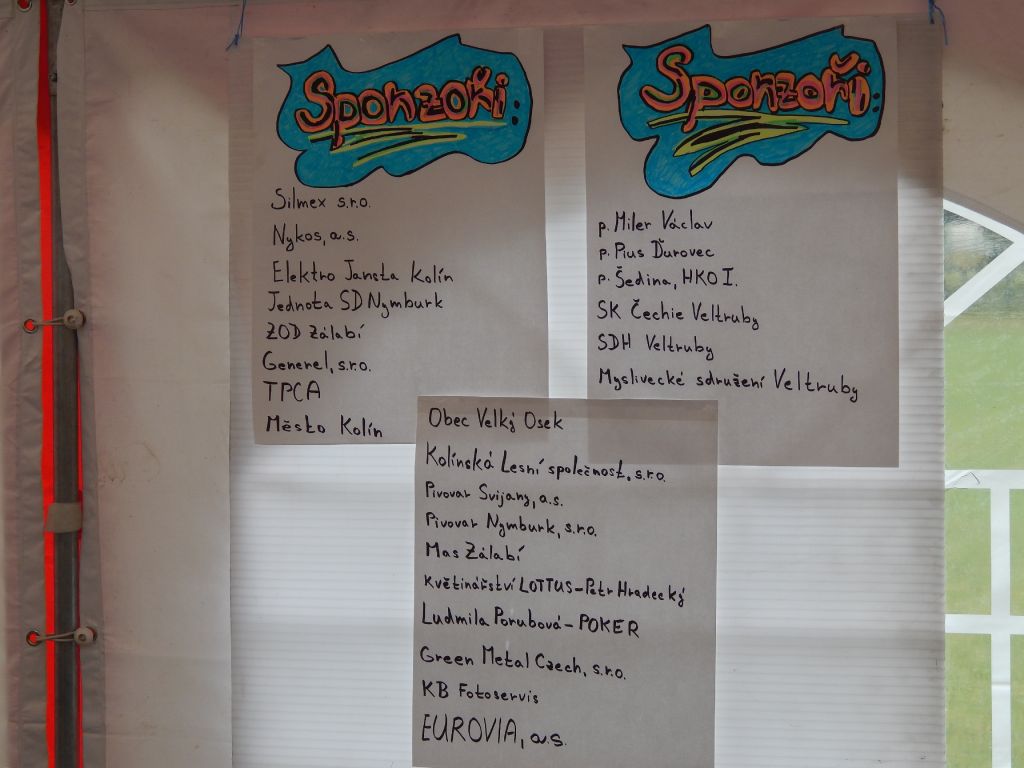 Sponzoři:
Silmex s.r.o.
Nykos, a.s.
Elektro Jansta Kolín
Jednota SD Nymburk
ZOD Zálabí
Generel, s.r.o.
TPCA
Město Kolín
Sponzoři:
p. Miler Václav
p. Pius Ďurovec
p. Šedina, HKO I.
SK Čechie Veltruby
SDH Veltruby
Myslivecké sdružení Veltruby
Obec Velký Osek
Kolínská Lesní společnost, s.r.o.
Pivovar Svijany, a.s.
Pivovar Nymburk, s.r.o.
Mas Zálabí
Květinářství LOTTUS-Petr Hradecký
Ludmila Porubová - POKER
Green Metal Czech, s.r.o.
KB Fotoservis
EUROVIA, a.s.